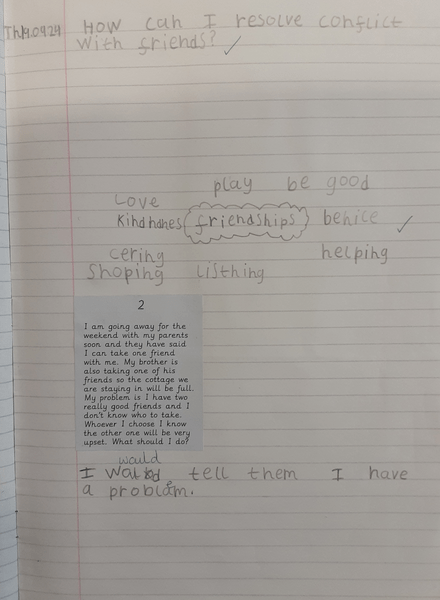 Th19.09.24 How can I resolve conflict
with friends?
play be good
Love
Kindhanes friendships benice
cering helping
Shoping listhing
2
I am going away for the
weekend with my parents
soon and they have said
I can take one friend
with me. My brother is
also taking one of his
friends so the cottage we
are staying in will be full.
My problem is I have two
really good friends and I
don't know who to take.
Whoever I choose I know
the other one will be very
upset. What should I do?
would
I tell them I have
a problom.